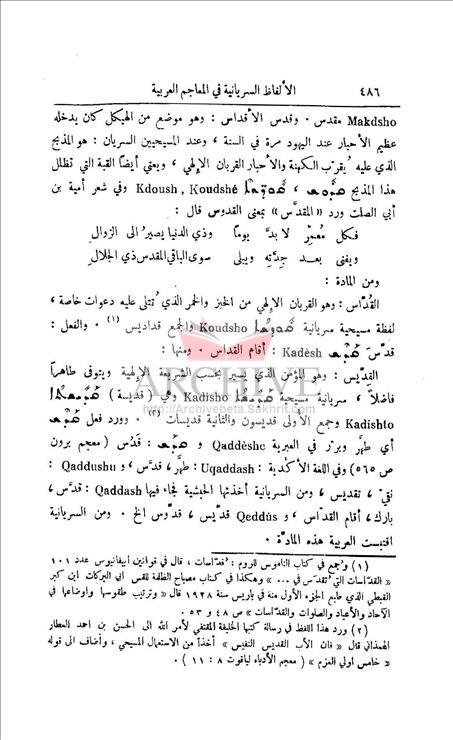 ٤٨٦ الألفاظ السريانية في المعاجم العربية
Makdsho مقدس ٠ وقدس الأقداس : وهو موضع من الهيكل كان يدخله
عظيم الأحبار عند اليهود مرة في السنة ، وعند المسيحيين السريان : هو المذبح
الذي عليه يُقرّب الكهنة والأحبار القربان الإلهي ، ويعني أيضاً القبة التي تظلل
هذا المذبح Kdoush , Koudshé وفي شعر أمية بن
أبي الصلت ورد « المقدَّس » بمعنى القدوس قال :
فكل معمر لا بدَّ يوماً وذي الدنيا يصير الى الزوال
ويفنى بعد جِدّته ويبلى سوى الباقي المقدس ذي الجلال
ومن المادة :
القُدّاس : وهو القربان الإلهي من الخبز والخمر الذي تُتلى عليه دعوات خاصة ،
لفظة مسيحية سريانية Koudsho والجمع قداديس (١) ٠ والفعل :
قدّسَ Kadèsh : أقام القداس ٠ ومنها :
القِدّيس : وهو المؤمن الذي يسير بحسب الشريعة الإلهية ويتوفى طاهراً
فاضلاً ، سريانية مسيحية Kadisho وهي (قديسة)
Kadishto وجمع الأولى قديسون والثانية قديسات (٢) ٠ وورد فعل
أي طهّر وبرّر في العبرية Qaddèshe و : قَدَّس ( معجم برون
ص ٥٦٥) وفي اللغة الأكدية : Uqaddash : طهّر ، قدّس ، و Qaddushu :
نقيّ ، تقديس ، ومن السريانية أخذتها الحبشية فجاء فيها Qaddash : قدّس ،
بارك ، أقام القداس ، و Qeddús قدّيس ، قدّوس الخ ٠ ومن السريانية
اقتبست العربية هذه المادة ٠
(١) وجمع في كتاب الناموس للروم : قداسات ، قال في قوانين أبيفانيوس عدد ١٠١
« القداسات التي تُقدّس في ٠٠٠ » وهكذا في كتاب مصباح الظلمة للقس أبي البركات ابن كبر
القبطي الذي طبع الجزء الأول منه في باريس سنة ١٩٢٨ قال « وترتيب طقوسها وأوضاعها في
الآحاد والأعياد والصلوات والقداسات » ص ٤٨ و ٥٣ ٠
(٢) ورد هذا اللفظ في رسالة كتبها الخليفة المقتفي لأمر الله الى الحسن بن أحمد العطار
الهمذاني قال « فان الأب القديس النفيس » أخذاً من الاستعمال المسيحي ، وأضاف الى قوله
« خامس أولي العزم » ( معجم الأدباء لياقوت ٨ : ١١ ) ٠
ARCHIVE
http://Archivebeta.Sakhrit.com